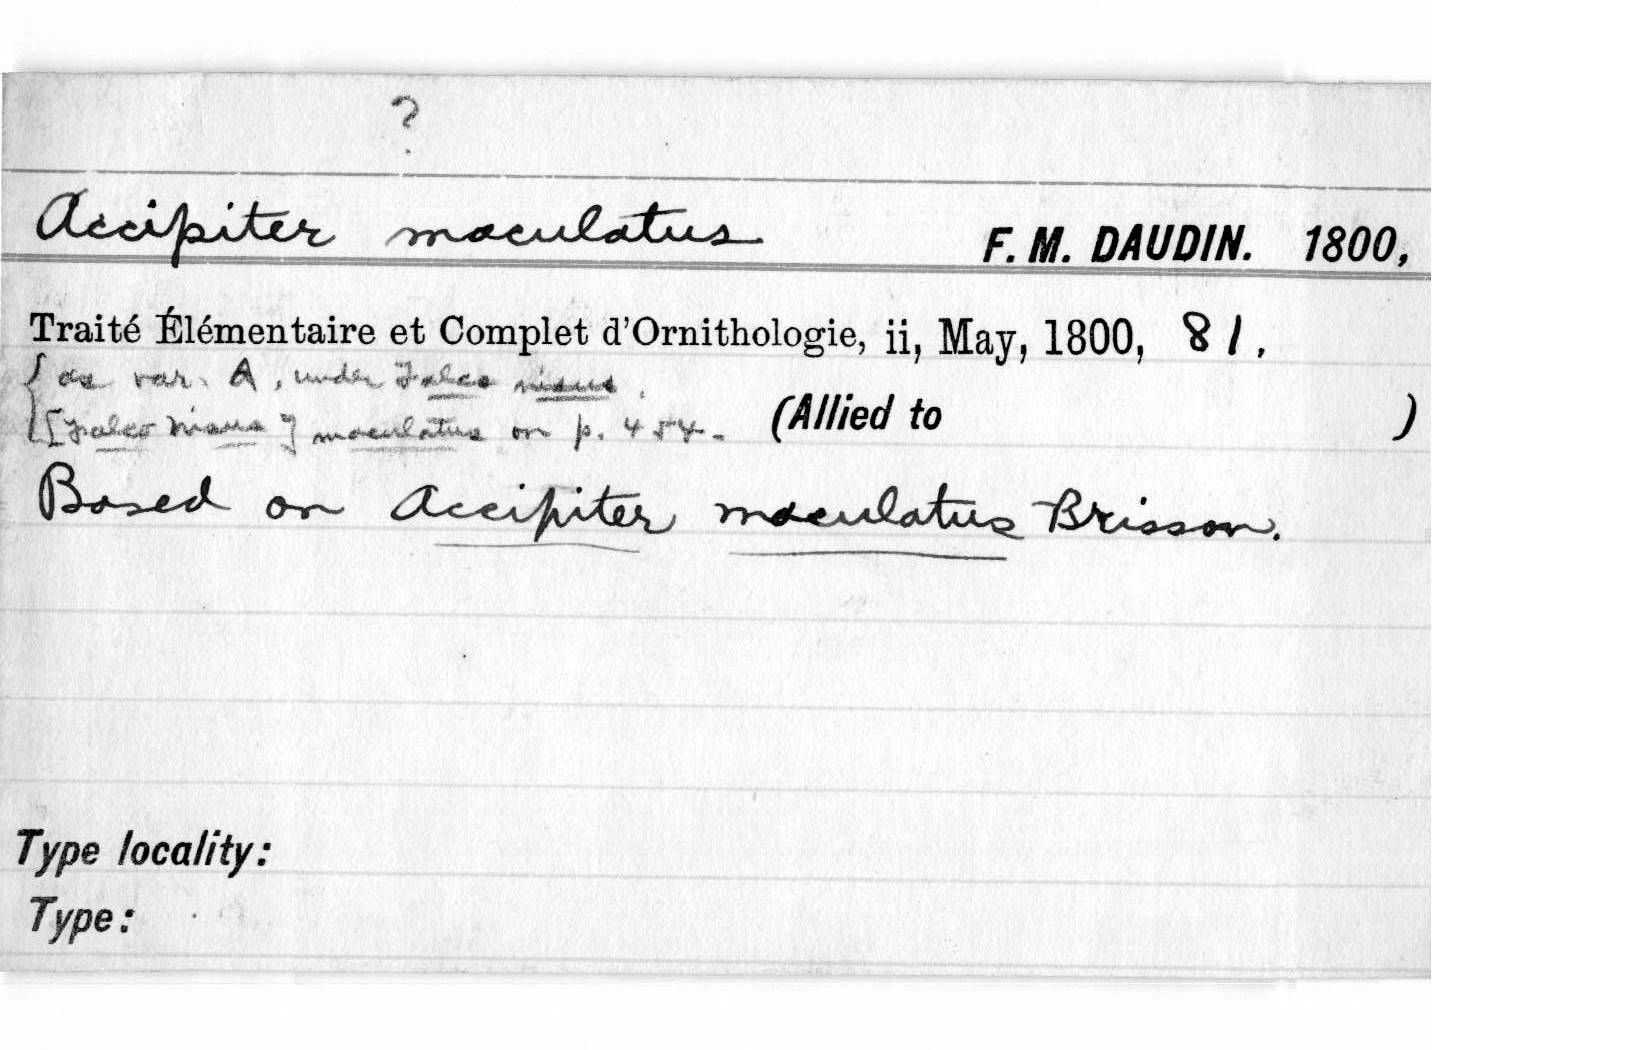 ?
Accipiter maculatus F. M. DAUDIN. 1800,
Traité Élémentaire et Complet d'Ornithologie, ii, May, 1800, 81.
{ as var. A, under Falco nisus.
[Falco nisus] maculatus on p. 454. (Allied to )
Based on Accipiter maculatus Brisson.
Type locality:
Type: